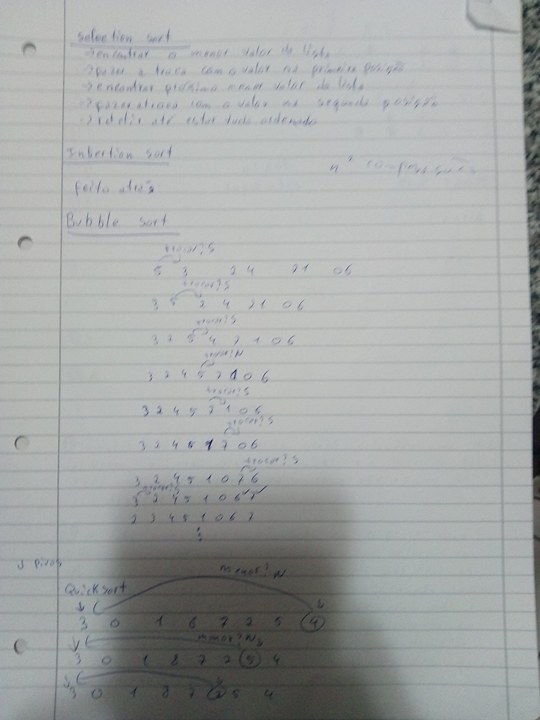 Selection sort
→ encontrar o menor valor da lista
→ fazer a troca com o valor na primeira posição
→ encontrar próximo menor valor da lista
→ fazer a troca com o valor na segunda posição
→ repetir até estar tudo ordenado
Insertion sort
n² comparações
feito atrás
Bubble sort
trocar? S
5 3 2 4 7 1 0 6
trocar? S
3 5 2 4 7 1 0 6
trocar? S
3 2 5 4 7 1 0 6
trocar? N
3 2 4 5 7 1 0 6
trocar? S
3 2 4 5 7 1 0 6
trocar? S
3 2 4 5 1 7 0 6
trocar? S
3 2 4 5 1 0 7 6
trocar? S
3 2 4 5 1 0 6 7
2 3 4 5 1 0 6 7
menor? N
Quicksort
3 0 1 8 7 2 5 4
menor? N
3 0 1 8 7 2 5 4
3 0 1 8 7 2 5 4